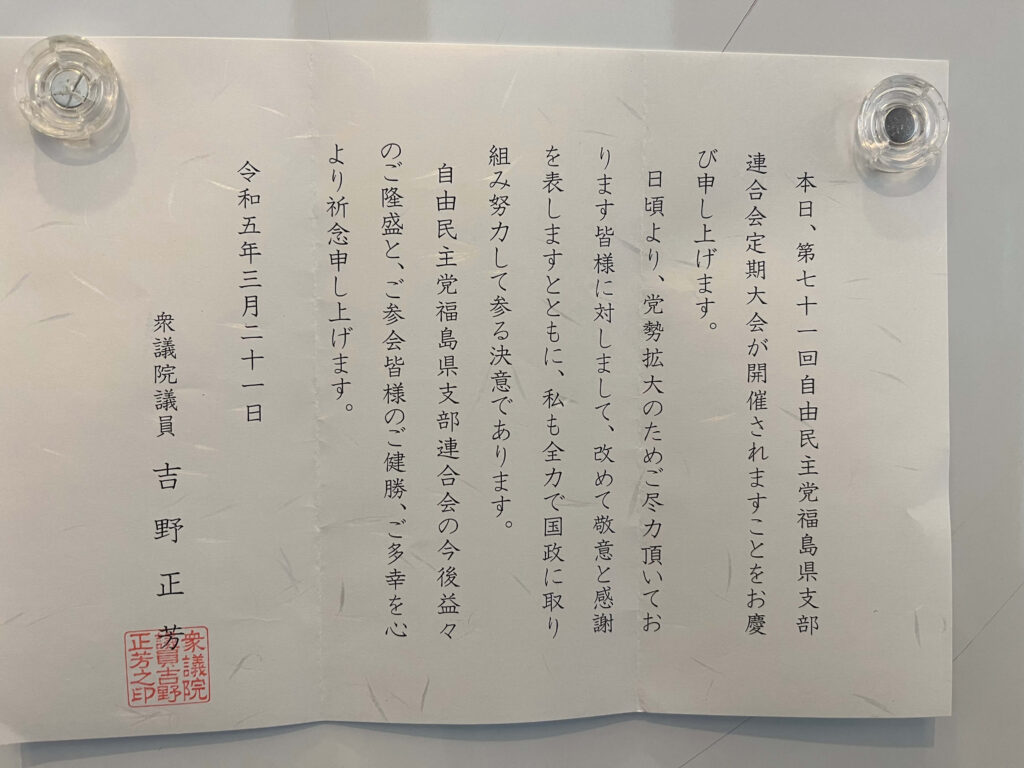 本日、第七十一回自由民主党福島県支部
連合会定期大会が開催されますことをお慶
び申し上げます。
日頃より、党勢拡大のためご尽力頂いてお
ります皆様に対しまして、改めて敬意と感謝
を表しますとともに、私も全力で国政に取り
組み努力して参る決意であります。
自由民主党福島県支部連合会の今後益々
のご隆盛と、ご参会皆様のご健勝、ご多幸を心
より祈念申し上げます。
令和五年三月二十一日
衆議院議員 吉野正芳
衆議院
議員吉野
正芳之印